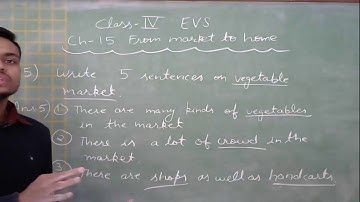 Class-IV EVS
Ch-15 From market to home
5) Write 5 sentences on vegetable
market.
Ans5) ① There are many kinds of vegetables
in the market
② There is a lot of crowd in the
market
③ There are shops as well as handcarts